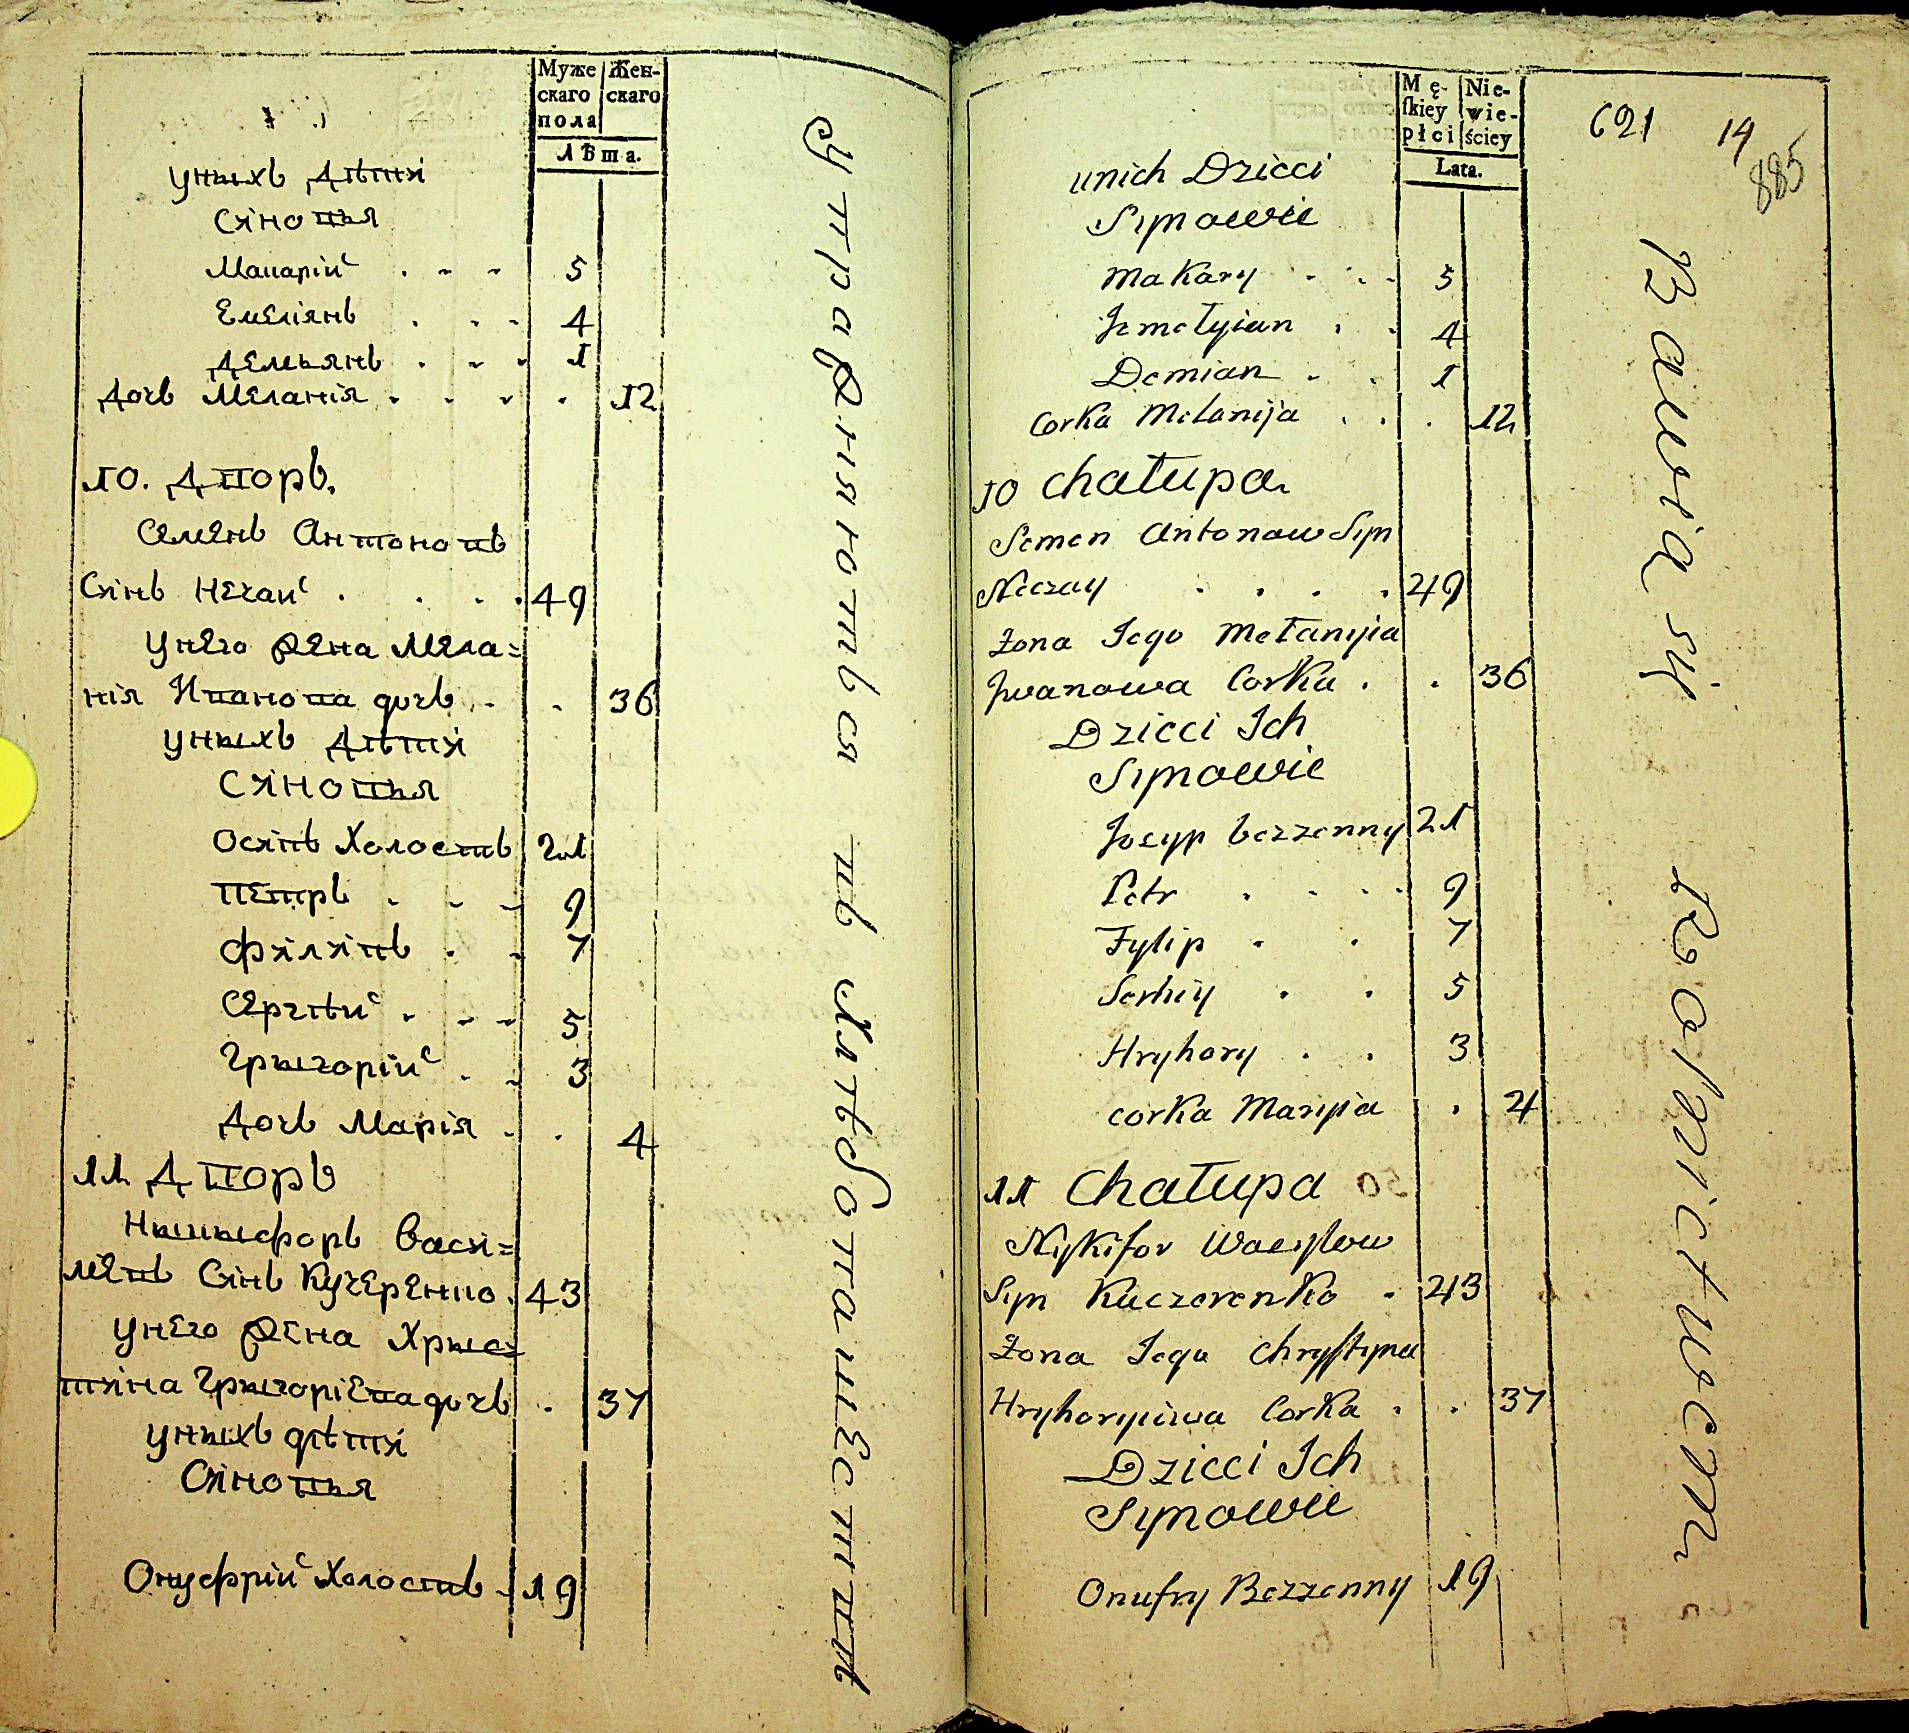 Муже
скаго
пола
Жен-
скаго
Лѣта.
уныхъ дѣти
Синовья
Макарій 5
Емеліянъ 4
Демьянъ 1
Дочъ Меланія 12
10. Дворъ.
Семенъ Антоновъ
Синъ Нечай 49
унего жена Мела=
нія Иванова дочъ 36
уныхъ дѣти
Синовья
Осипъ Холостъ 21
Петръ 9
Филипъ 7
Сергѣй 5
Грыгорій 3
Дочъ Марія 4
11 Дворъ
Ныкыфоръ Васи=
лѣвъ Синъ Кучеренко 43
унего жена Хрыс=
тина Грыгоріева дочъ 37
уныхъ дѣти
Синовья
Онуфрій Холостъ 19
упражняются въ хлѣбопашествѣ
Mę-
ſkiey
płci
Nie-
wie-
ściey
Lata.
621 14
885
unich Dzieci
Synowie
Makary 5
Jemełyian 4
Demian 1
Corka Melanija 12
10 Chałupa
Semen Antonow Syn
Neczay 49
Zona Jego Mełanyia
Jwanowa Corka 36
Dzieci Ich
Synowie
Josyp bezzenny 21
Petr 9
Fylip 7
Serhiy 5
Hryhory 3
corka Maryia 4
11 Chałupa
Nykifor Wasylow
Syn Kuczerenko 43
Zona Jego Chryſtyna
Hryhoryiwa Corka 37
Dzieci Ich
Synowie
Onufry Bezzenny 19
Bawią się Rolnictwem